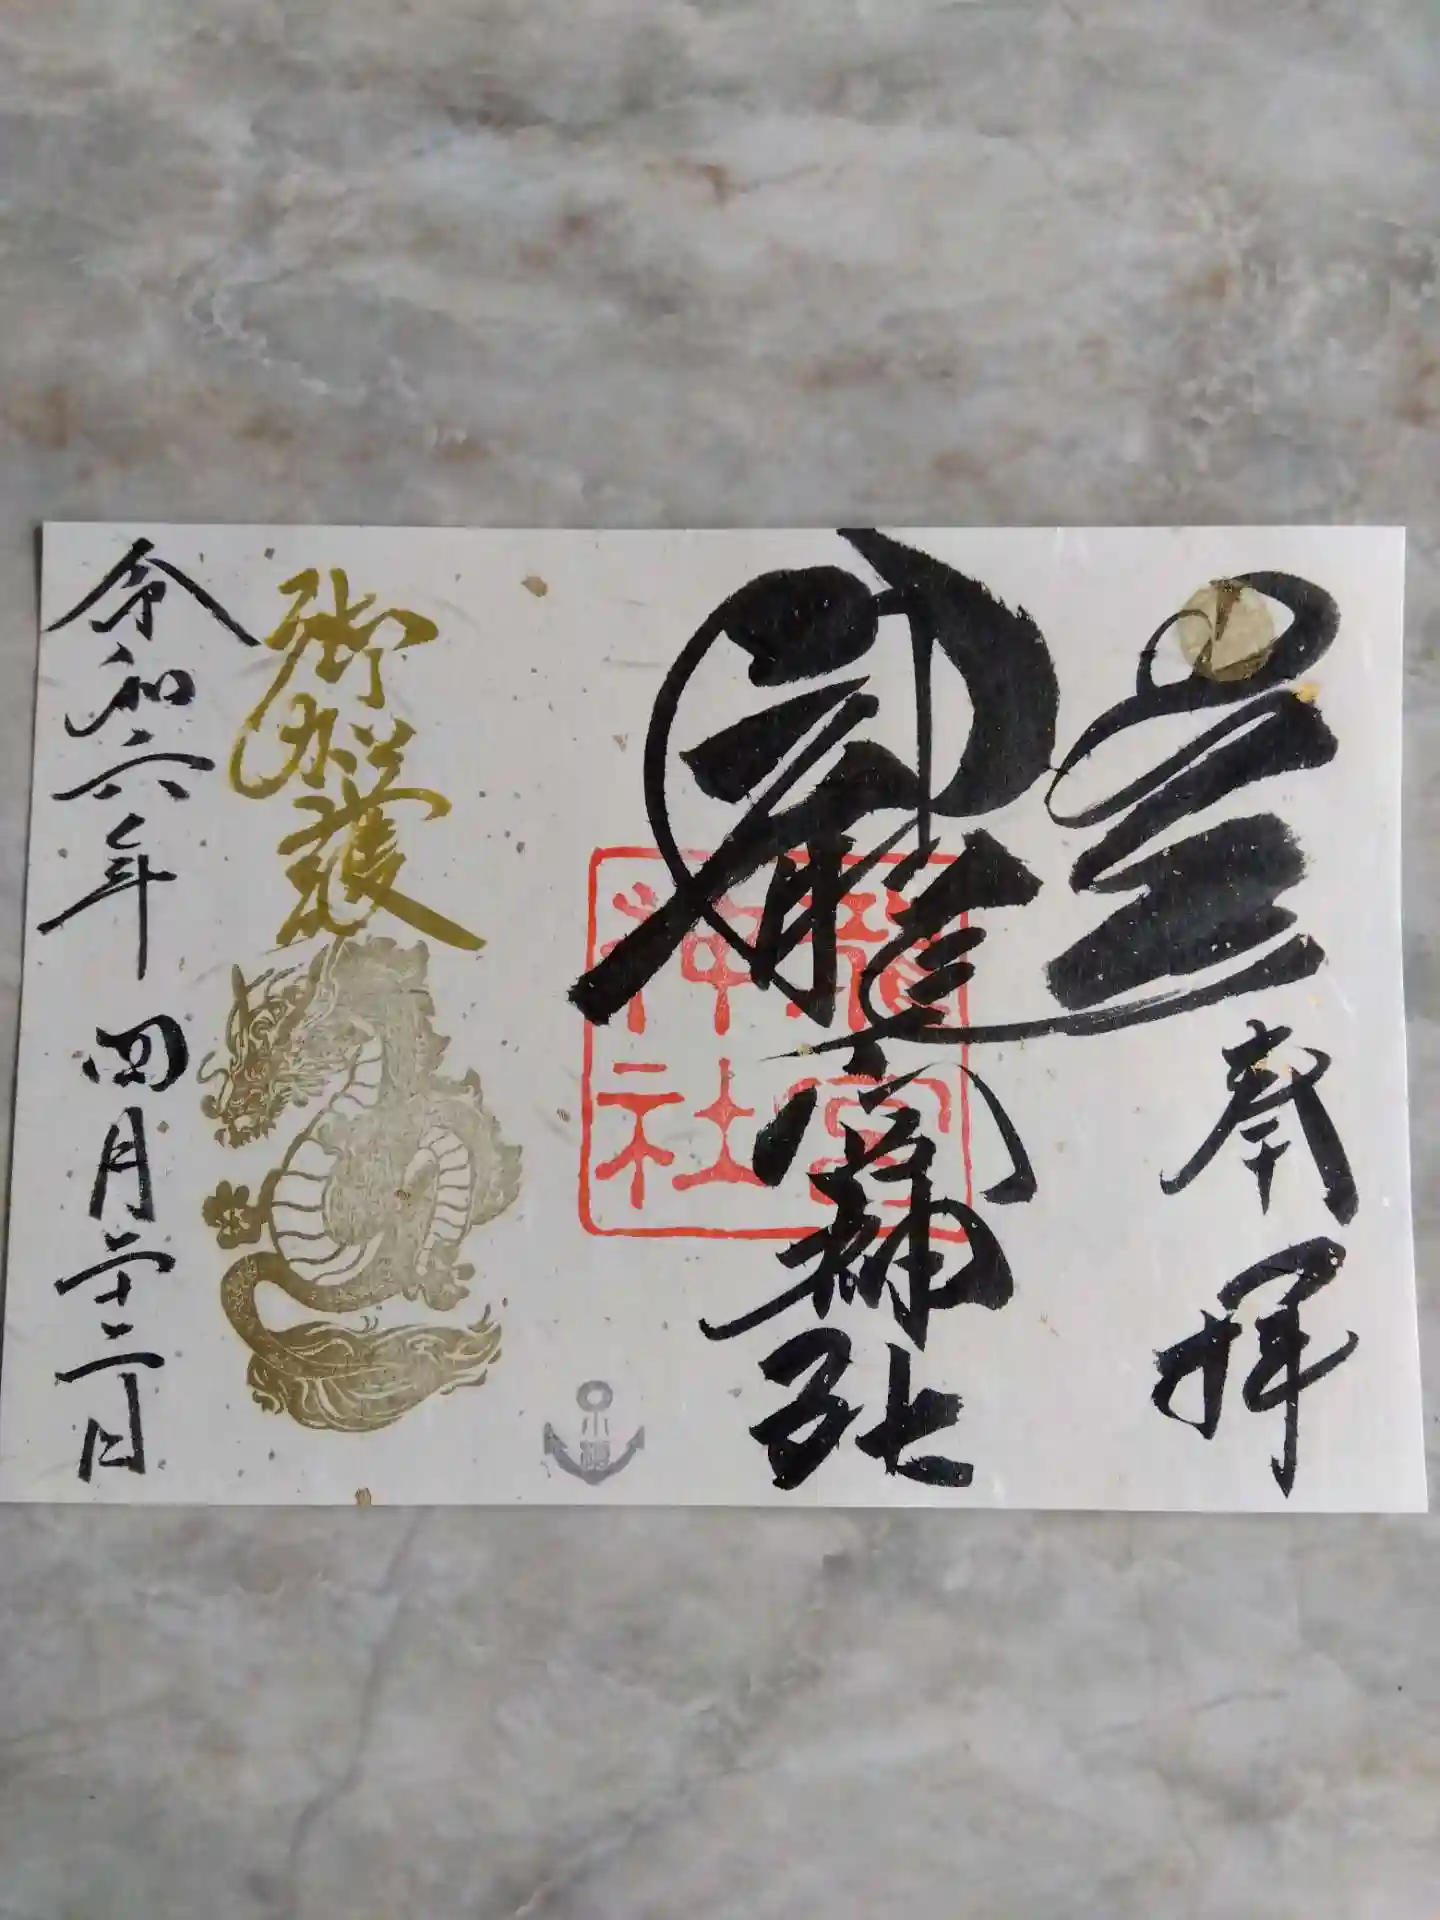 奉拝
龍宮神社
龍宮
神社
小樽
御加護
令和六年 四月二十二日